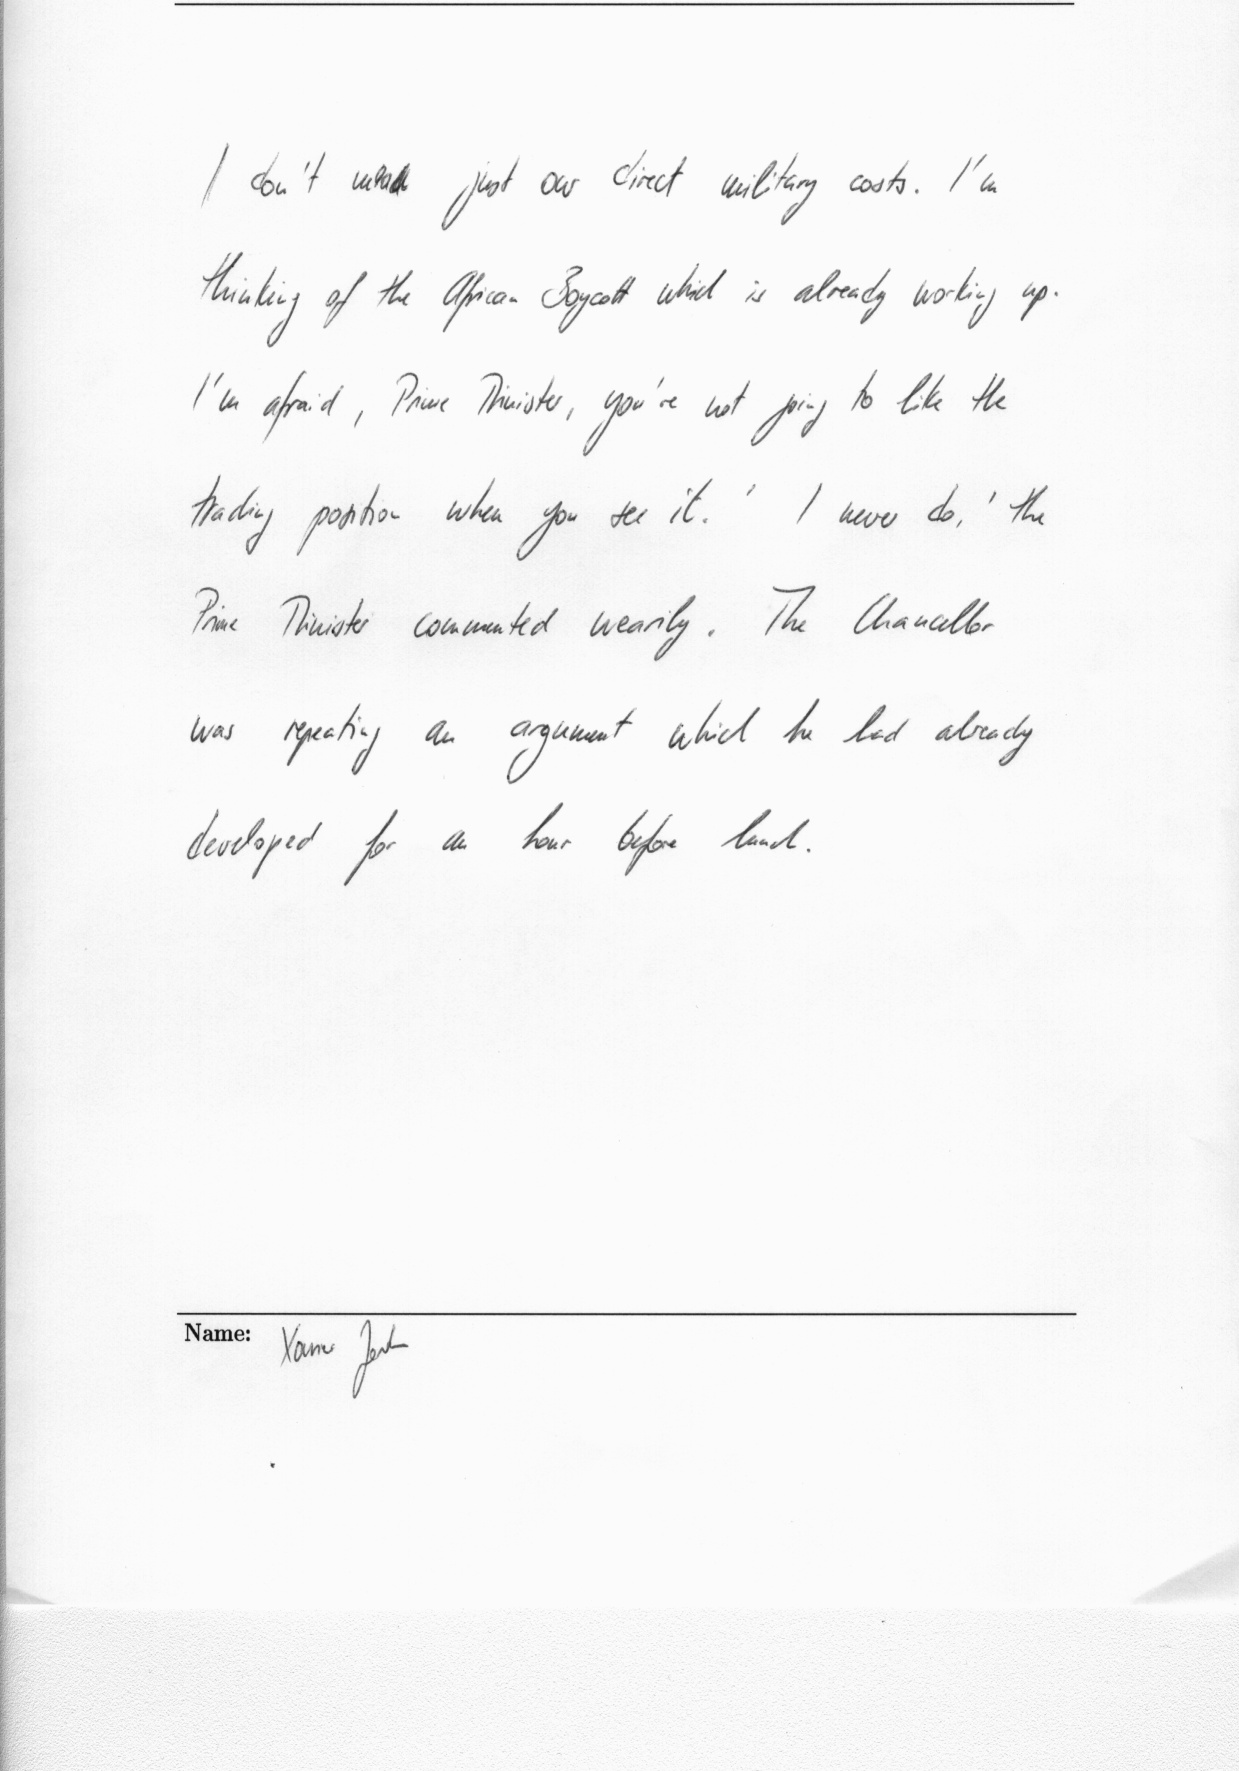 I don't mean just our direct military costs. I'm
thinking of the African Boycott which is already working up.
I'm afraid, Prime Minister, you're not going to like the
trading position when you see it.' I never do,' the
Prime Minister commented wearily. The Chancellor
was repeating an argument which he had already
developed for an hour before lunch.
Name: